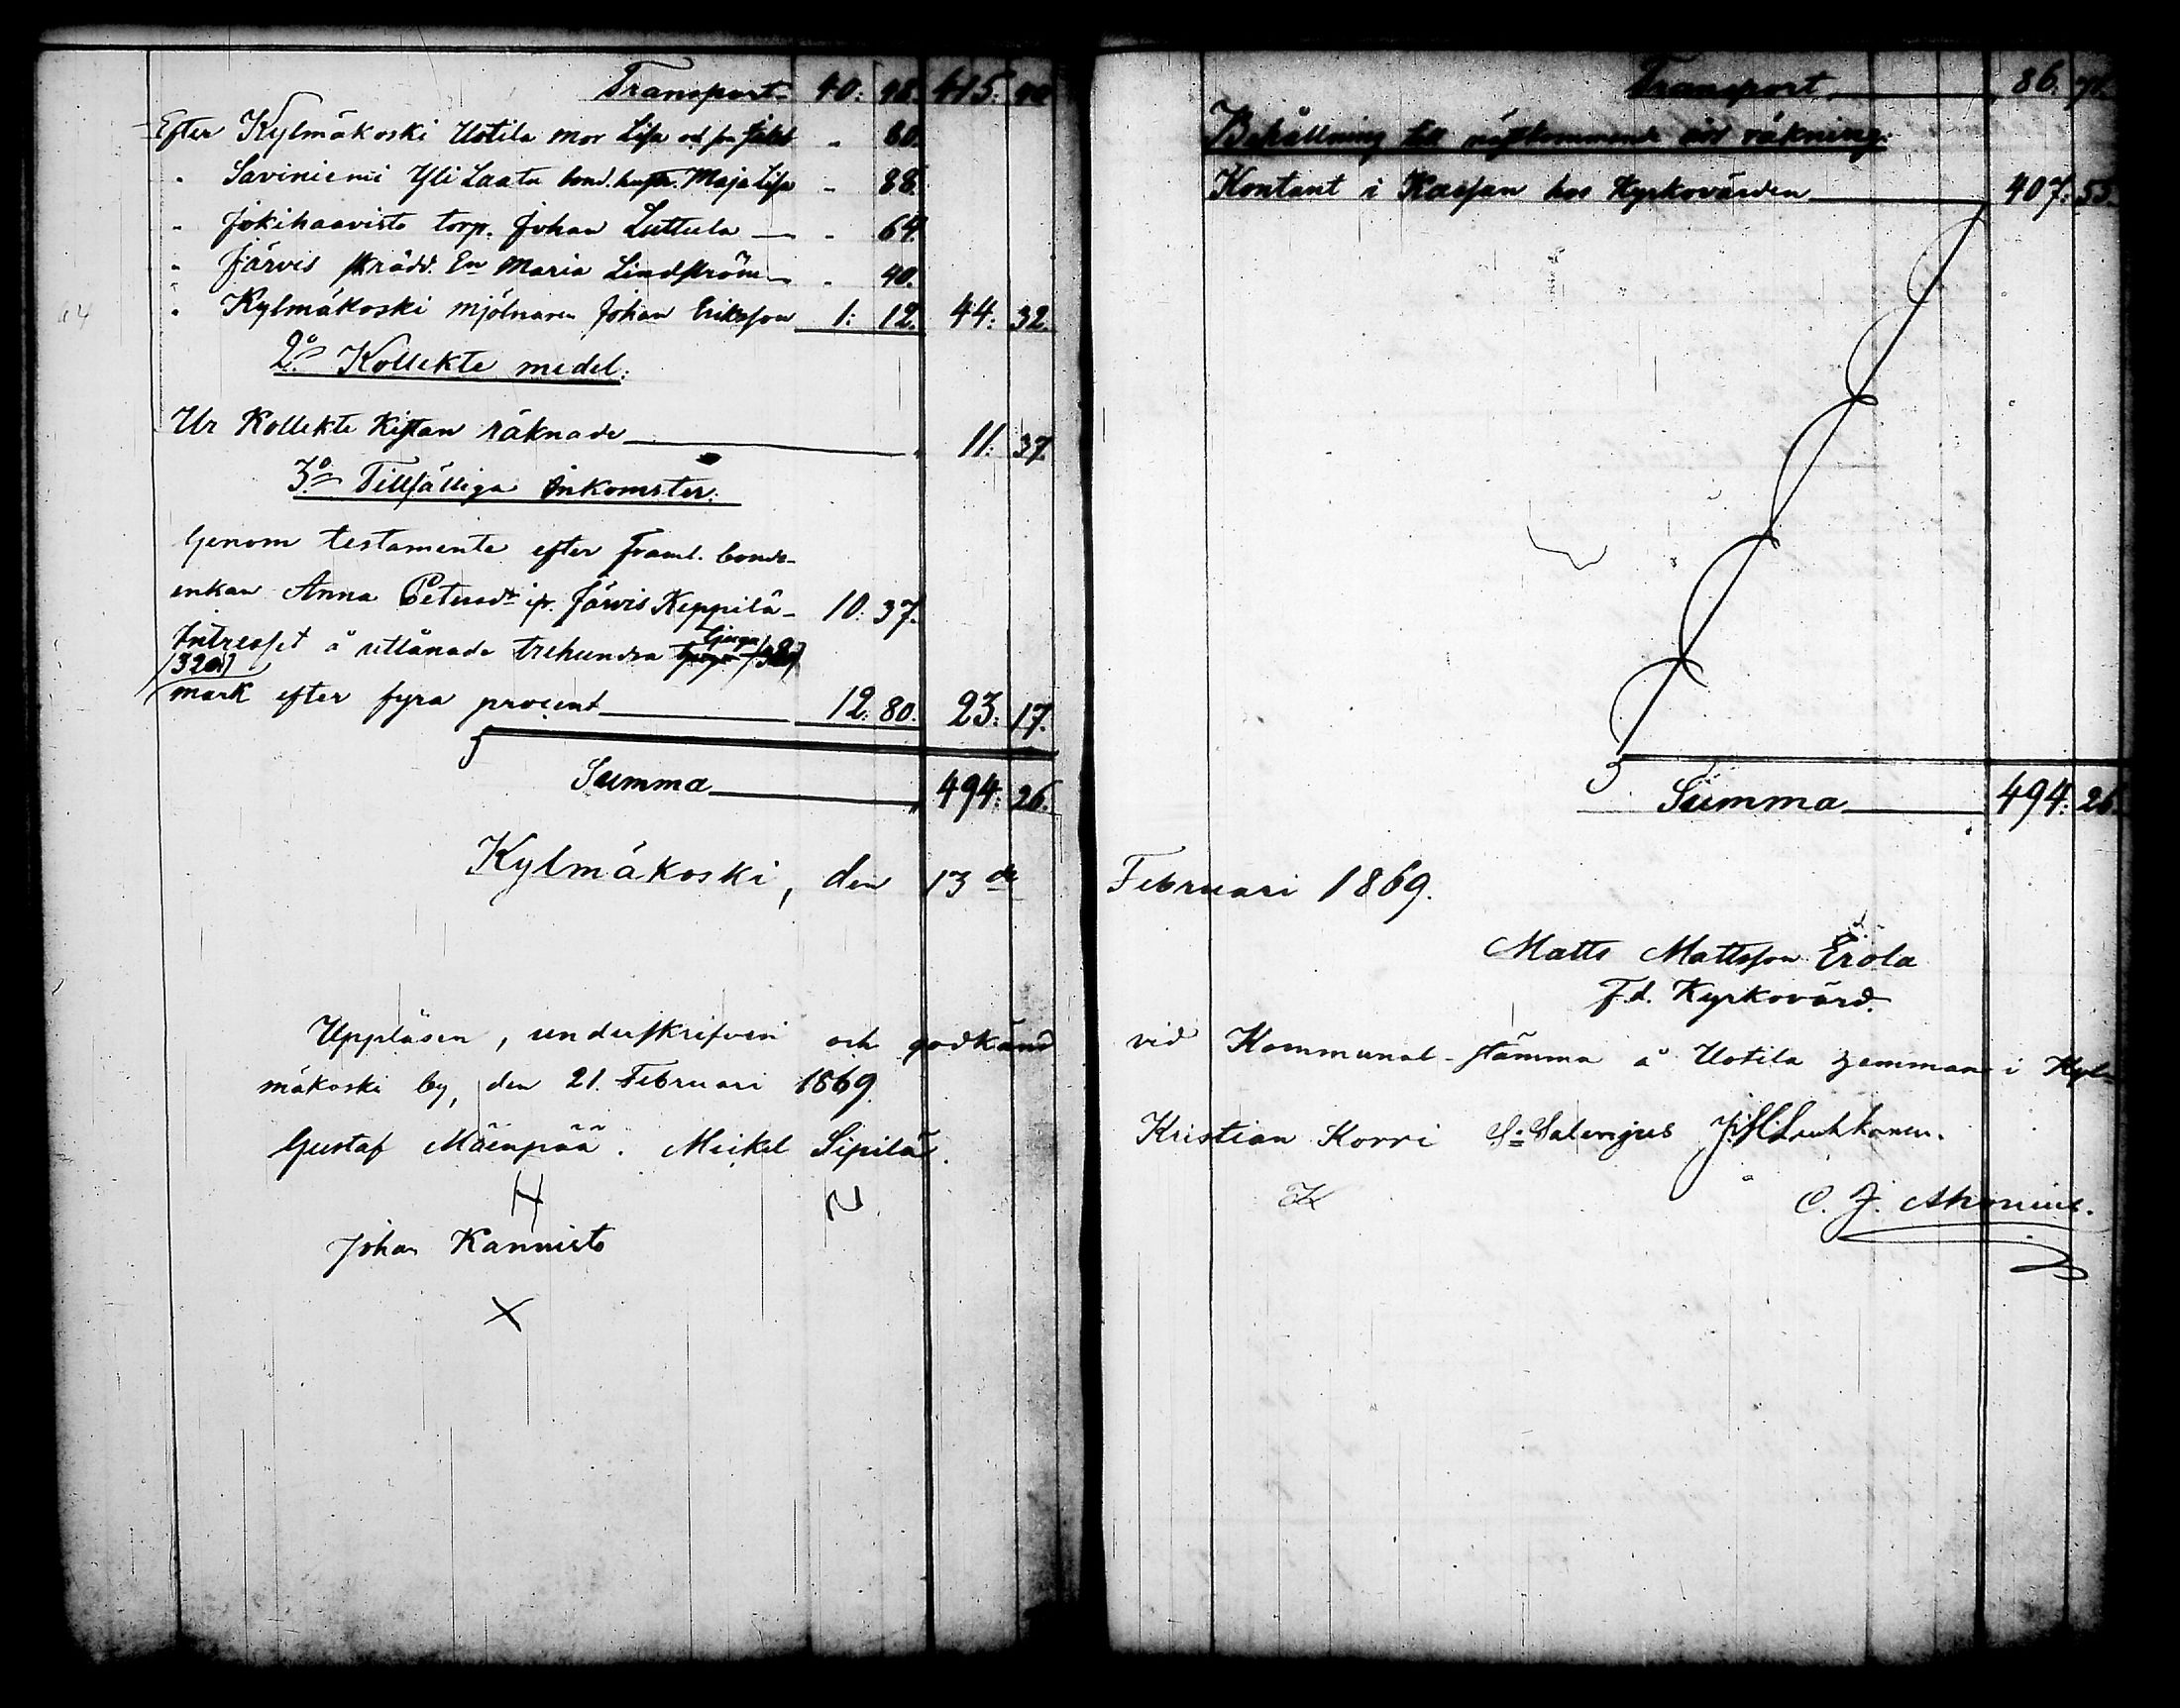 Transport 40: 98. 415: 40
Efter Kylmäkoski Uotila mor Lisa " 60.
" Saviniemi Yli Laatu bond. hustr. Maja Lisa " 88.
" Jokihaavisto torp. Johan Luttula " 64.
" Järvis skrädd. En Maria Lindström " 40.
" Kylmäkoski mjölnaren Johan Eriksson 1: 12. 44: 32.
2o Kollekte medel:
Ur Kollekte Kistan räknade 11: 37.
3o Tillfälliga Inkomster.
Genom testamente efter framl. bonde-
enkan Anna Petersdr ifr. Järvis Keppilä 10: 37.
Intresset å utlånade trehundra tjuga
(320)
mark efter fyra procent 12: 80. 23: 17.
Summa 494: 26.
Kylmäkoski, den 13de
Uppläsen, underskrifven och godkänd
mäkoski by, den 21. Februari 1869.
Gustaf Mäenpää. Mickel Sipilä.
Johan Kannisto
X
Transport 86. 71.
Behållning till nästkommande års räkning.
Kontant i Kassan hos Kyrkovärden 407: 55.
Summa 494: 26.
Februari 1869.
Matts Mattsson Erola
F.d. Kyrkovärd.
vid Kommunal-stämma å Uotila hemman i Kyl-
Kristian Korri S. Salenjus
C. J.